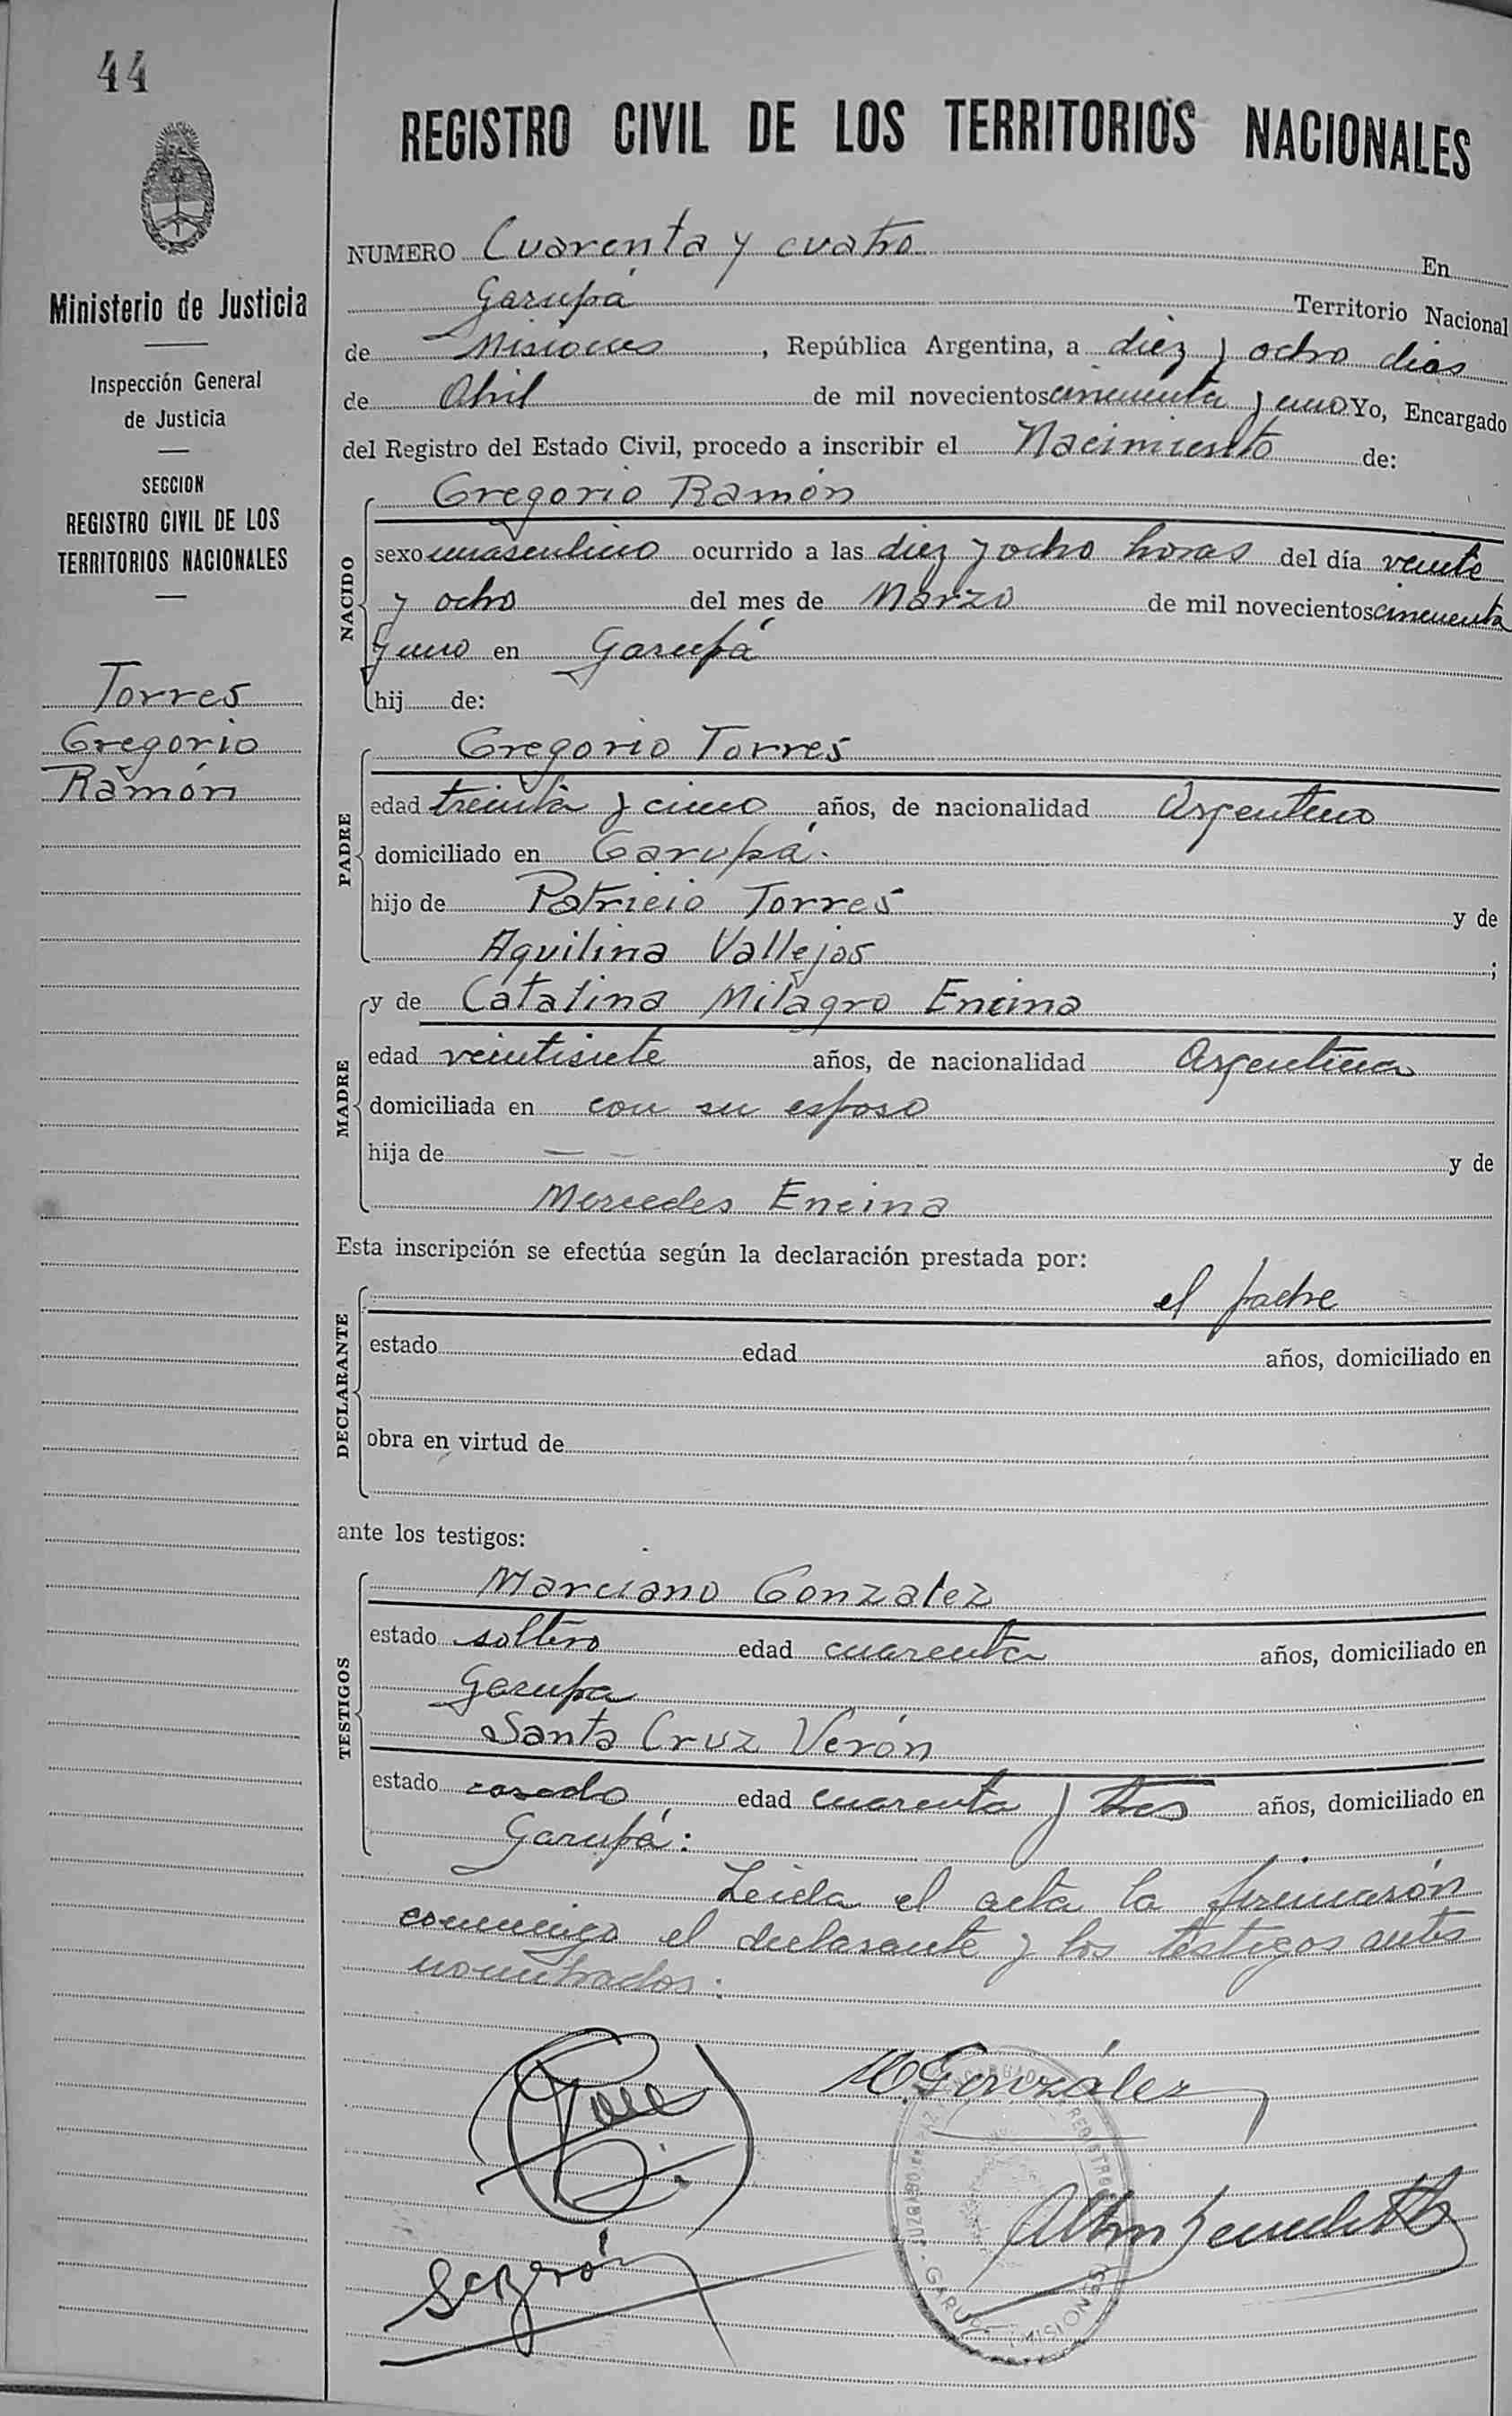 44
REGISTRO CIVIL DE LOS TERRITORIOS NACIONALES
Ministerio de Justicia
Inspección General
de Justicia
SECCION
REGISTRO CIVIL DE LOS
TERRITORIOS NACIONALES
Torres
Gregorio
Ramón
NUMERO Cuarenta y cuatro En
Garupá Territorio Nacional
de Misiones, República Argentina, a diez y ocho dias
de Abril de mil novecientos cincuenta y uno Yo, Encargado
del Registro del Estado Civil, procedo a inscribir el Nacimiento de:
NACIDO
Gregorio Ramón
sexo masculino ocurrido a las diez y ocho horas del día veinte
y ocho del mes de Marzo de mil novecientos cincuenta
y uno en Garupá
hij de:
PADRE
Gregorio Torres
edad treinta y cinco años, de nacionalidad Argentino
domiciliado en Garupá.
hijo de Patricio Torres y de
Aquilina Vallejos ;
MADRE
y de Catalina Milagro Encina
edad veintisiete años, de nacionalidad Argentina
domiciliada en con su esposo
hija de — — y de
Mercedes Encina
Esta inscripción se efectúa según la declaración prestada por:
DECLARANTE
el padre
estado edad años, domiciliado en
obra en virtud de
ante los testigos:
TESTIGOS
Marciano Gonzalez
estado soltero edad cuarenta años, domiciliado en
Garupa
Santa Cruz Verón
estado casado, edad cuarenta y tres años, domiciliado en
Garupá:
Leida el acta la firmarón
conmigo el declarante y los testigos antes
nombrados:
M. González